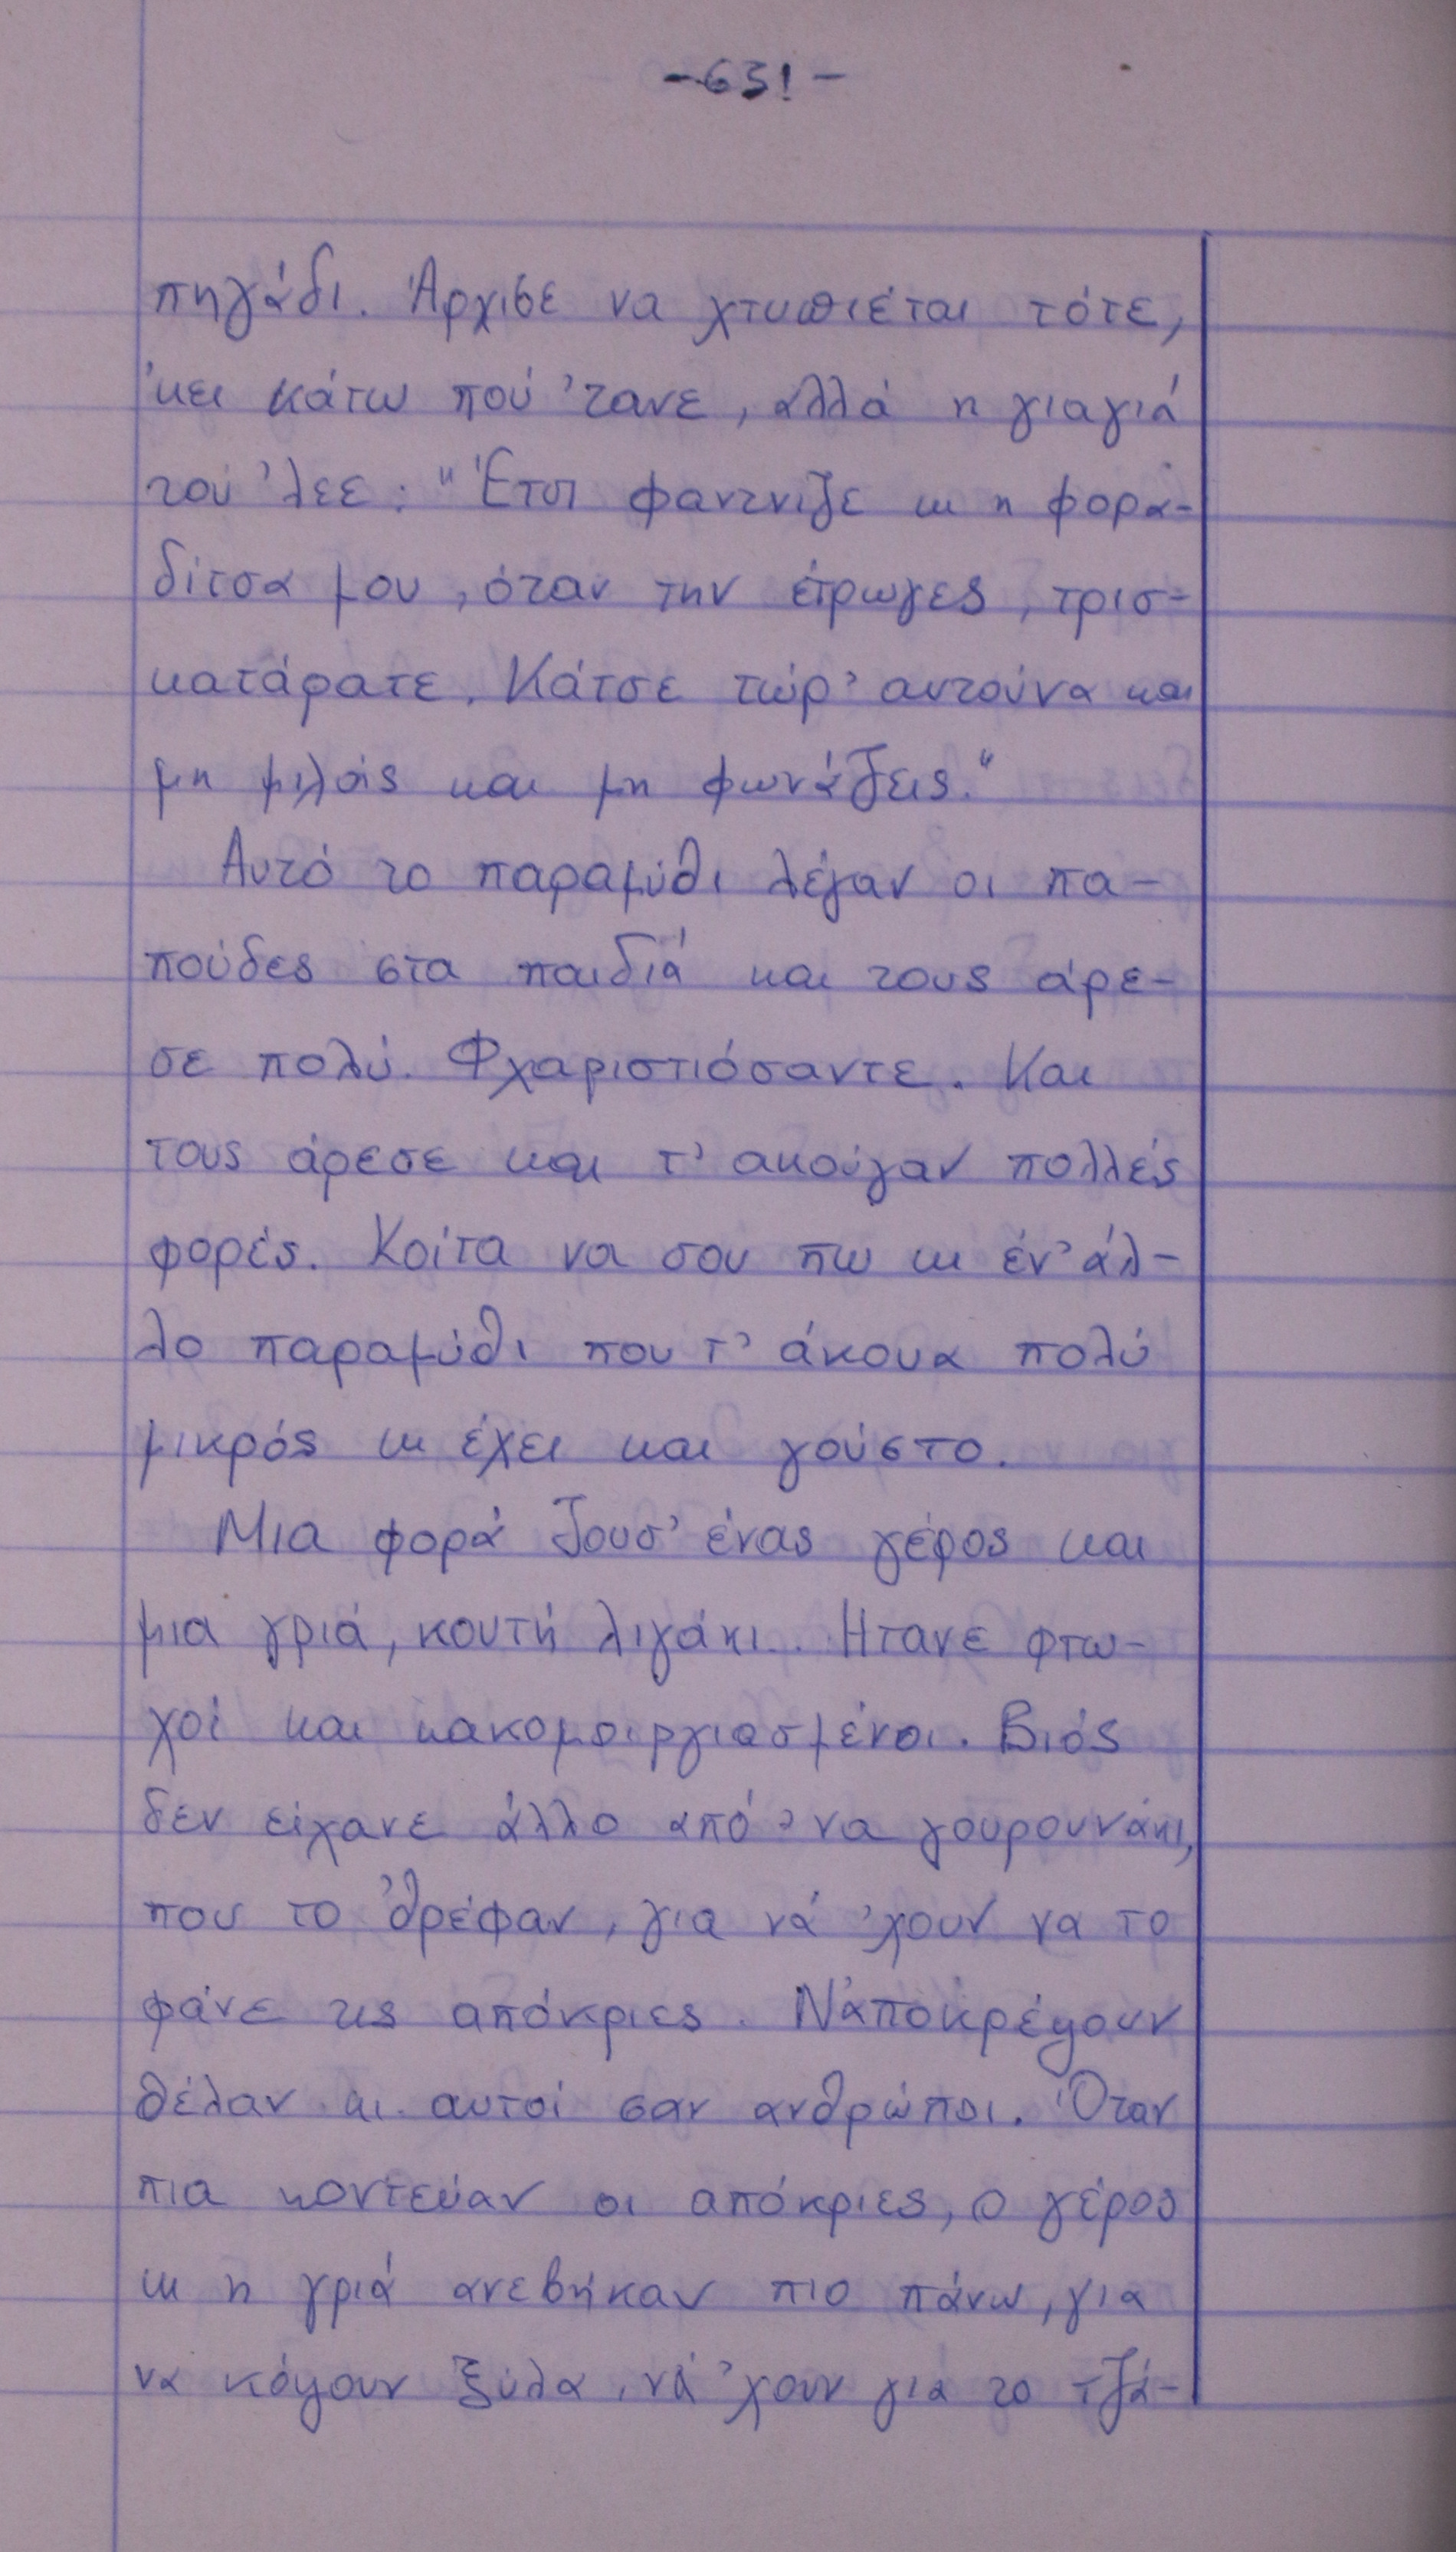 -631-
πηγάδι. Άρχισε να χτυπιέται τότε,
'κει κάτω πού 'τανε, αλλά η γιαγιά
τού 'λεε: "Έτσι φώνιζε κι η φορα-
δίτσα μου, όταν την έτρωγες, τρισ-
κατάρατε. Κάτσε τώρ' αυτούνα και
μη μιλάς και μη φωνάζεις."
Αυτό το παραμύθι λέγαν οι πα-
πούδες στα παιδιά και τους άρε-
σε πολύ. Φχαριστιόσαντε. Και
τους άρεσε και τ' ακούγαν πολλές
φορές. Κοίτα να σου πω κι έν' άλ-
λο παραμύθι που τ' άκουα πολύ
μικρός κι έχει και γούστο.
Μια φορά ζουσ' ένας γέρος και
μια γριά, κουτή λιγάκι. Ήτανε φτω-
χοί και κακομοιργιασμένοι. Βιός
δεν είχανε άλλο από 'να γουρουνάκι,
που το 'θρέφαν, για νά 'χουν να το
φάνε τις απόκριες. Ν' αποκρέψουν
θέλαν κι αυτοί σαν ανθρώποι. Όταν
πια κοντεύαν οι απόκριες, ο γέρος
κι η γριά ανεβήκαν πιο πάνω, για
να κόψουν ξύλα, νά 'χουν για το τζά-